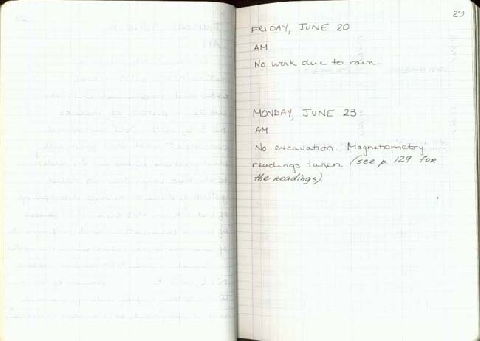 29
FRIDAY, JUNE 20
AM
No work due to rain.
MONDAY, JUNE 23
AM
No excavation. Magnetometry
readings taken (see p. 129 for
the readings)